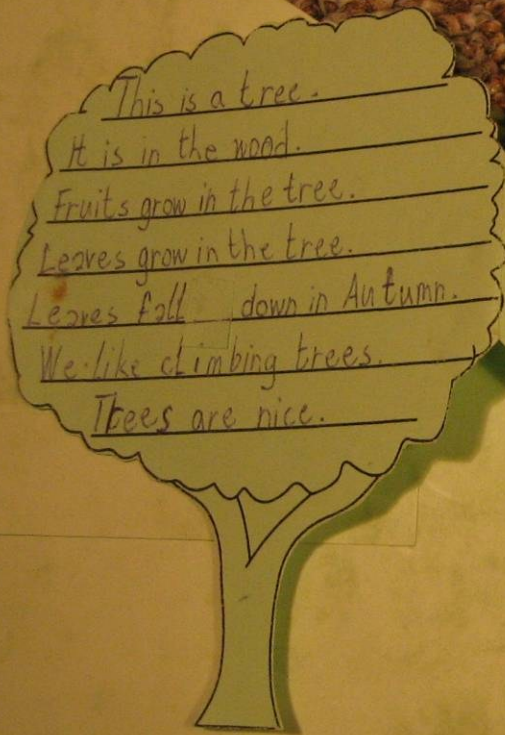 This is a tree.
It is in the wood.
Fruits grow in the tree.
Leaves grow in the tree.
Leaves fall down in Autumn.
We like climbing trees.
Trees are nice.